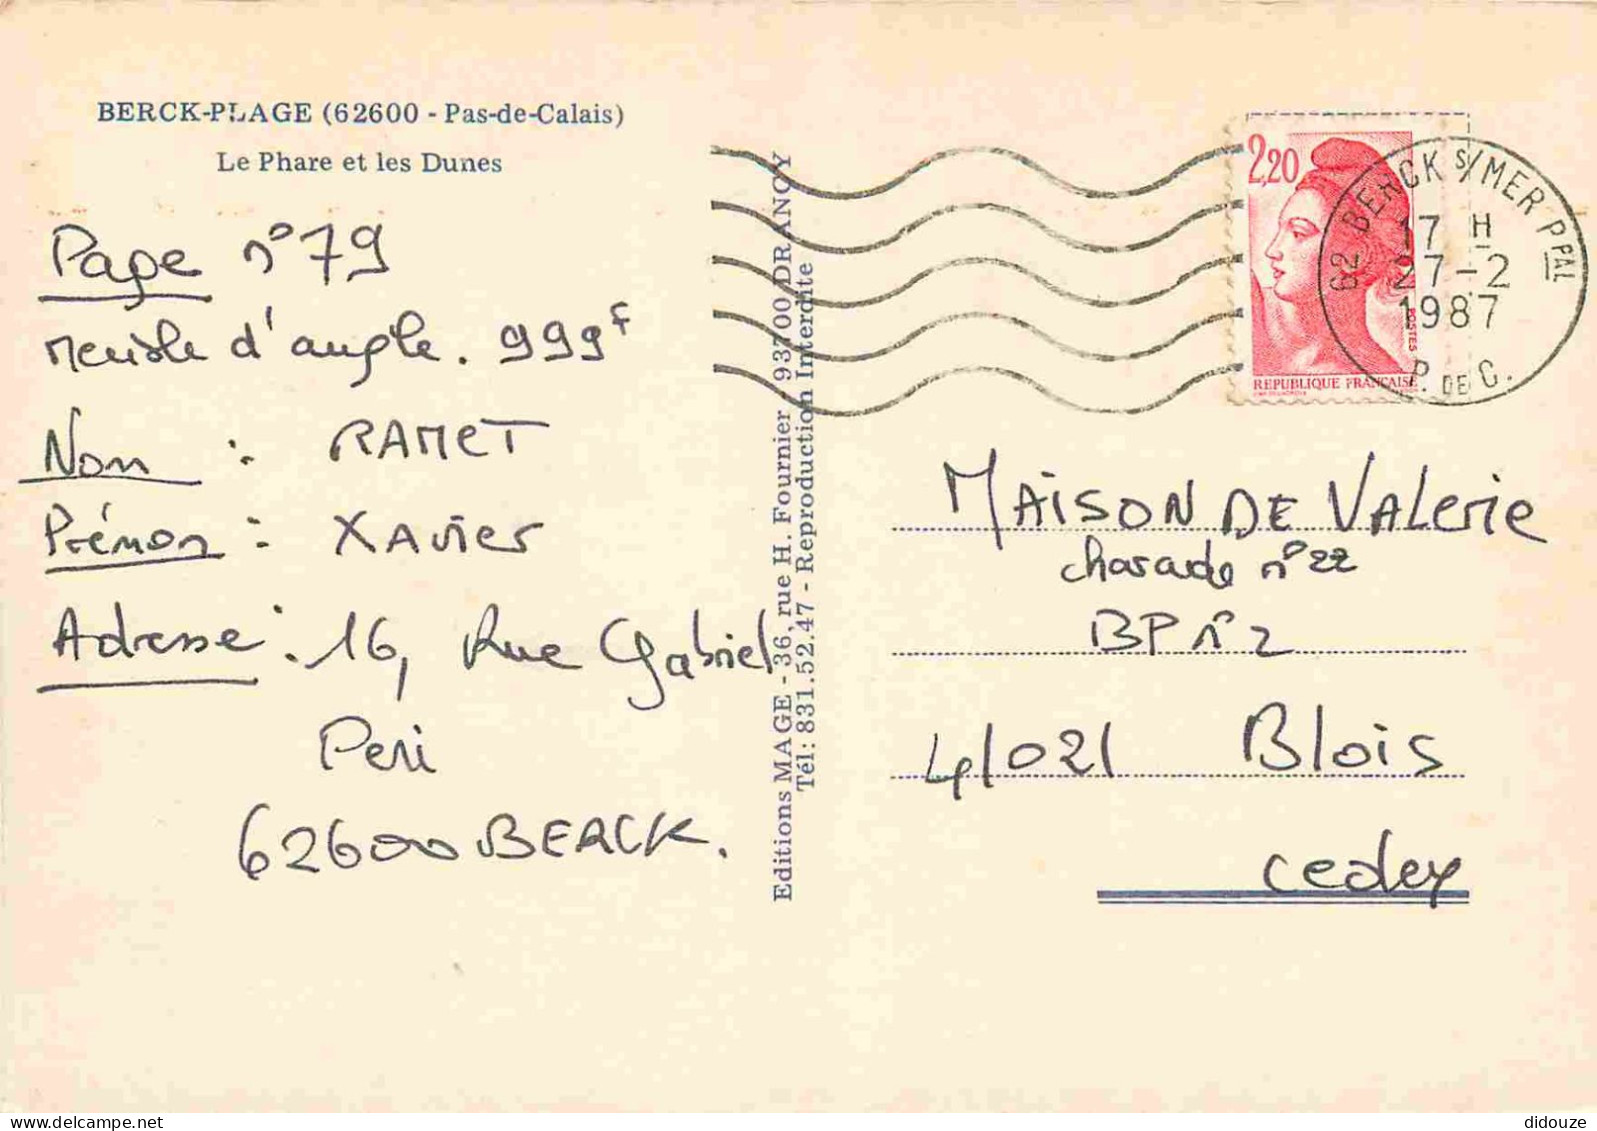 BERCK-PLAGE (62600 - Pas-de-Calais)
Le Phare et les Dunes
Page n°79
meuble d'angle. 999F
Nom : RAMET
Prénom : XAVIER
Adresse : 16, Rue Gabriel
Peri
62600 BERCK.
Editions MAGE - 36, rue H. Fournier 93700 DRANCY
Tél: 831.52.47 - Reproduction Interdite
2,20
POSTES
REPUBLIQUE FRANÇAISE
62 BERCK S/MER PPAL
17 H
27-2
1987
P. DE C.
MAISON DE VALERIE
charade n°22
BP n°2
41021 Blois
Cedex
didouze